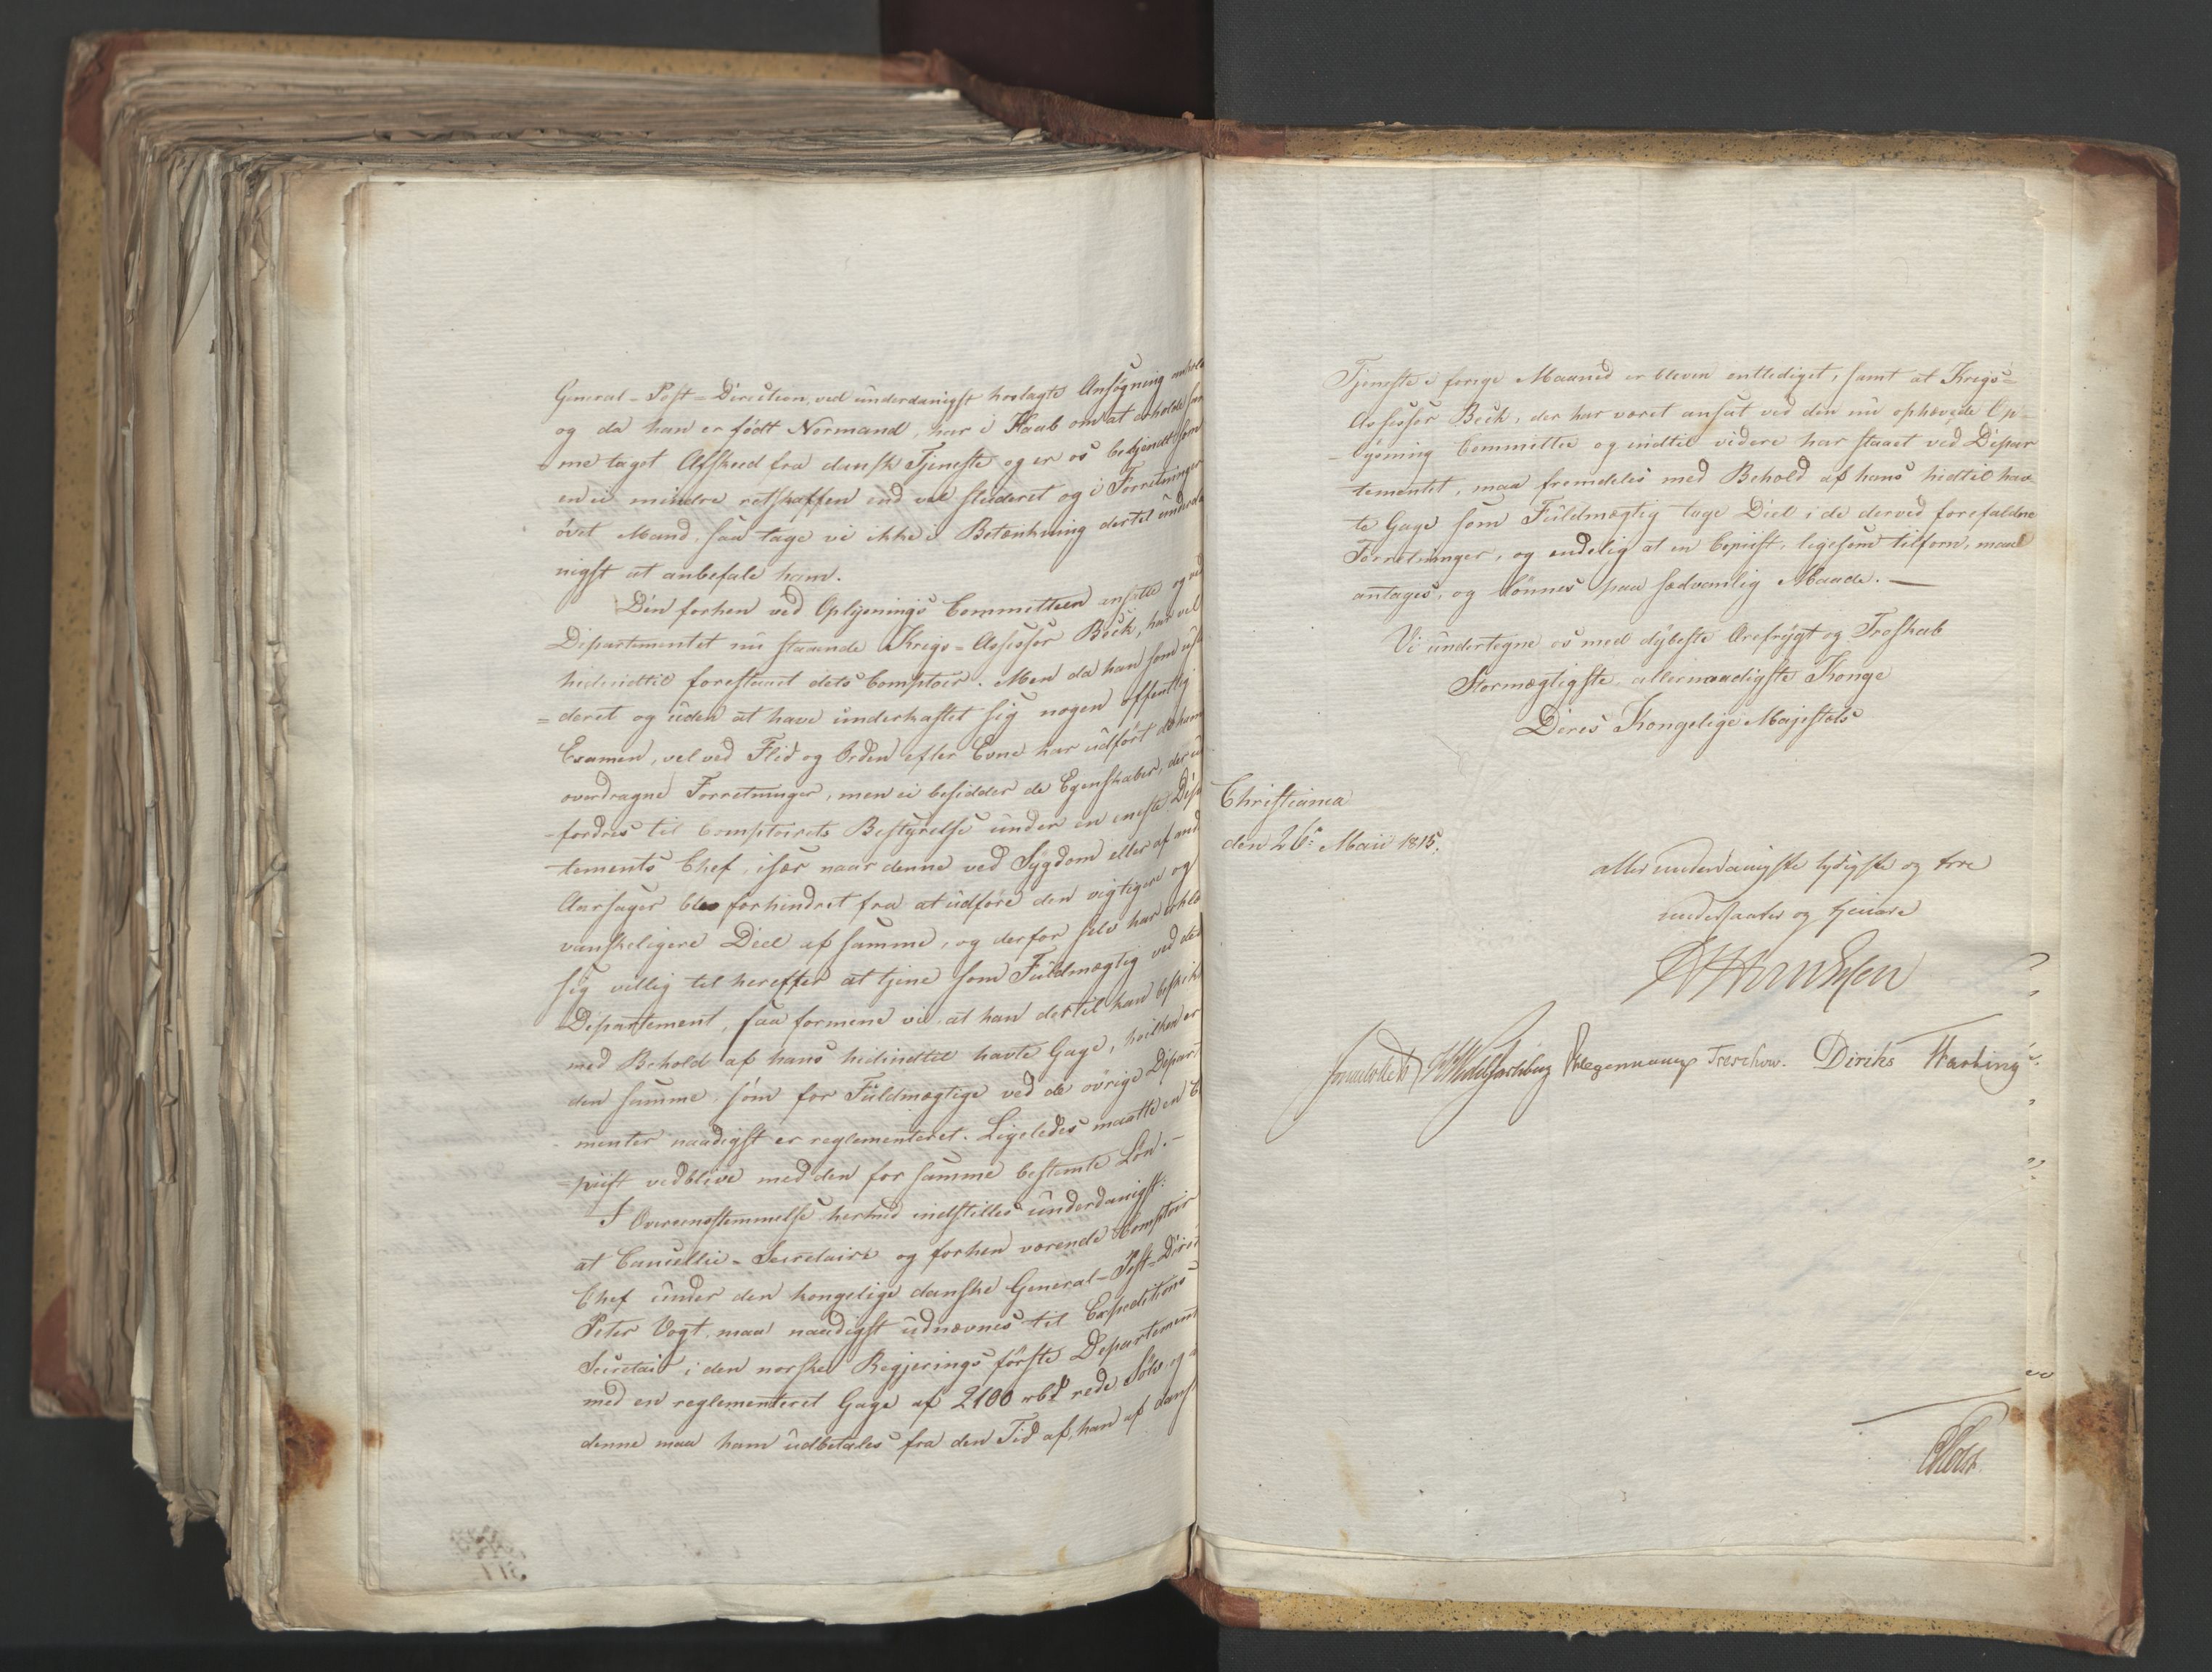 General-Post-Direction, ved underdanigst hoslagte Ansøgning
og da han er født Normand, har i Haab om at erholde
me taget Afskeed fra dansk Tjeneste og er os bekjendt som
en ei mindre retskaffen end vel studeret og i Forretninger
øvet Mand, saa tage vi ikke i Betænkning dertil underda
nigst at anbefale ham.
Den forhen ved Oplysnings Committeen ansatte og ved
Departementet nu staaende Krigs-Assessor Beck, har vel
hidindtil forestaaet dets Comptoir. Men da han som ustu
=deret og uden at have underkastet sig nogen offentlig
Examen, vel ved Flid og Orden efter Evne har udført de ham
overdragne Forretninger, men ei besidder de Egenskaber, der ud
-fordres til Comptoirets Bestyrelse under en eneste Depar
-tements Chef, især naar denne ved Sygdom eller af and
Aarsager blev forhindret fra at udføre den vigtigere og
vanskeligere Deel af samme, og derfor selv har erklæ
sig villig til herefter at tjene som Fuldmægtig ved det
Departement, saa formene vi at han dertil kan beskik
med Behold af hans hidindtil havte Gage, hvilken er
den samme, som for Fuldmægtige ved de øvrige Depart
menter naadigst er reglementeret. Ligeledes maatte en C
-piist vedblive med den for samme bestemte Løn.-
I Overeensstemmelse hermed indstilles underdanigst:
at Cancellie-Secretaire og forhen værende Comptoir
Chef under den kongelige danske General-Post-Direct
Peter Vogt, maa naadigst udnævnes til Expeditions
Secretair i den norske Regjerings første Departement
med en reglementeret Gage af 2100 rbd rede Sølv, og a
denne maa ham udbetales fra den Tid af, han af dansk
Tjeneste i forige Maaned er bleven entlediget, samt at Krigs=
Assessor Beck, der har været ansat ved den nu ophævede Op=
-lysning Committee og indtil videre har staaet ved Depar
tementet, maa fremdeles med Behold af hans hidtil hav
te Gage som Fuldmægtig tage Deel i de derved forefaldne
Forretninger, og endelig at en Copiist, ligesom tilforn, maae
antages, og lønnes paa sædvanlig Maade. —
Vi undertegne os med dybeste Ærefrygt og Troskab
Stormægtigste allernaadigste Konge
Deres Kongelige Majestæts
Christiania
den 26. Maii 1815.
allerunderdanigste lydigste og troe
undersaatter og tjenere
Sommerhielm Wedel Jarlsberg Hegermann Treschow. Diriks Hartwig
Holst